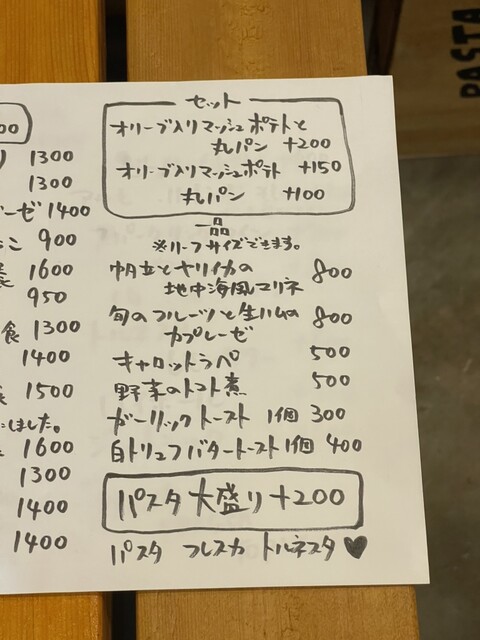 PASTA
00
1300
1300
ーゼ 1400
900
1600
950
食 1300
1400
1500
しました。
1600
1300
1400
1400
セット
オリーブ入りマッシュポテトと
丸パン +200
オリーブ入りマッシュポテト +150
丸パン +100
一品
※ハーフサイズできます。
帆立とヤリイカの 800
地中海風マリネ
旬のフルーツと生ハムの 800
カプレーゼ
キャロットラペ 500
野菜のトマト煮 500
ガーリックトースト 1個 300
白トリュフバタートースト 1個 400
パスタ大盛り +200
パスタ フレスカ トルネスタ ♥